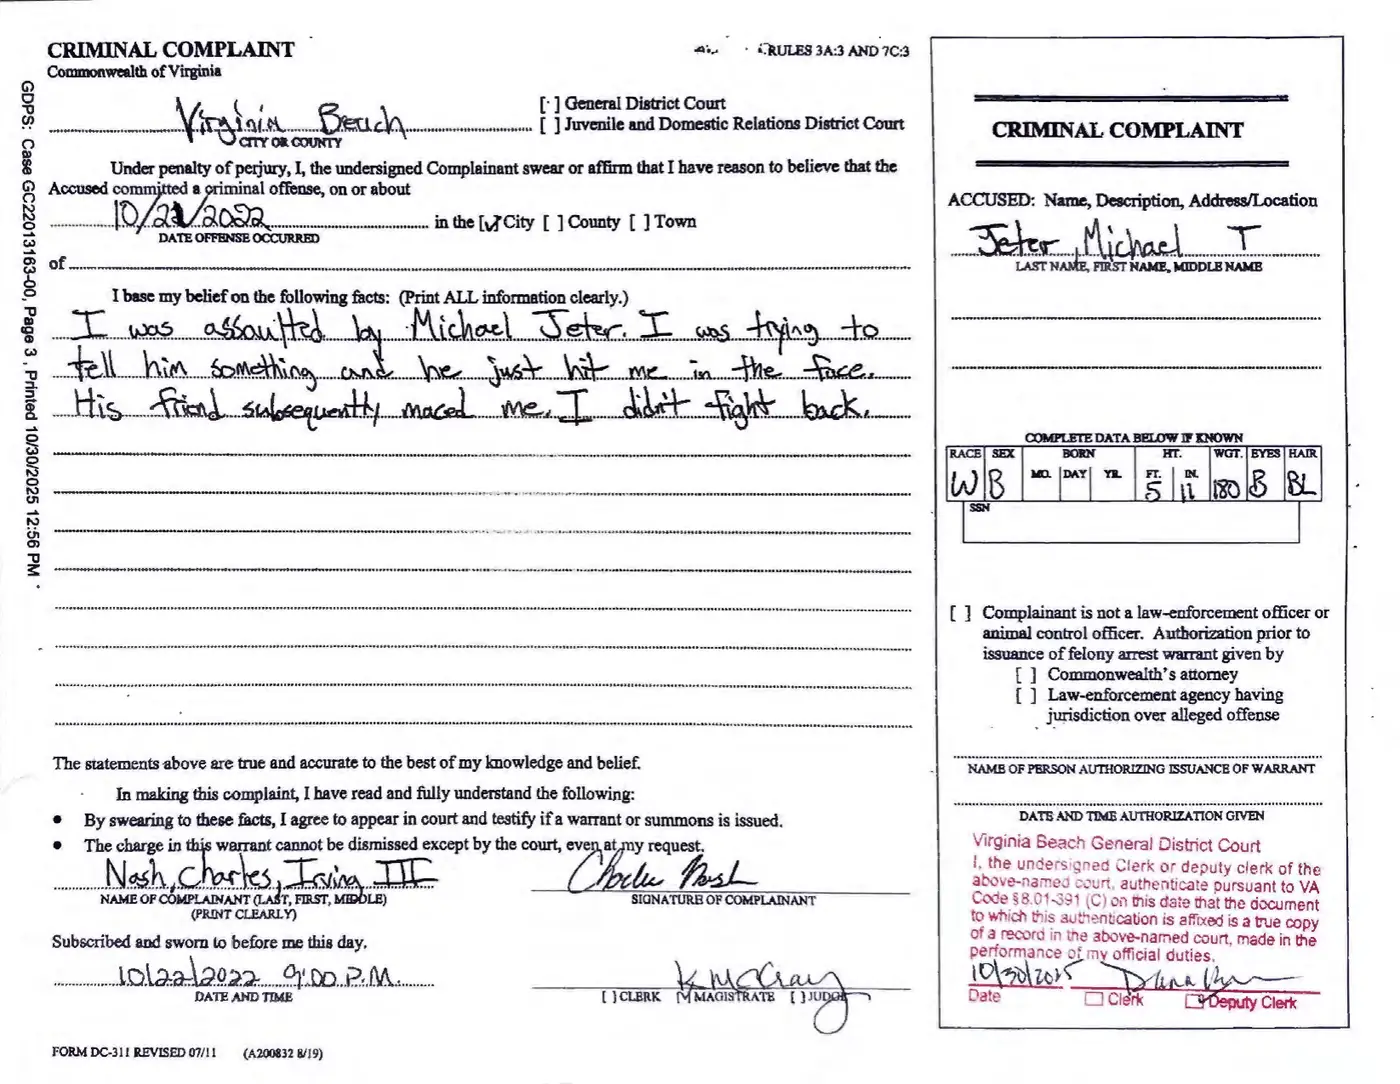 CRIMINAL COMPLAINT
Commonwealth of Virginia
RULES 3A:3 AND 7C:3
Virginia Beach
CITY OR COUNTY
[ ] General District Court
[ ] Juvenile and Domestic Relations District Court
Under penalty of perjury, I, the undersigned Complainant swear or affirm that I have reason to believe that the
Accused committed a criminal offense, on or about
10/21/2022 in the [✓] City [ ] County [ ] Town
DATE OFFENSE OCCURRED
of
I base my belief on the following facts: (Print ALL information clearly.)
I was assaulted by Michael Jeter. I was trying to
tell him something and he just hit me in the face.
His friend subsequently maced me. I didn't fight back.
The statements above are true and accurate to the best of my knowledge and belief.
In making this complaint, I have read and fully understand the following:
• By swearing to these facts, I agree to appear in court and testify if a warrant or summons is issued.
• The charge in this warrant cannot be dismissed except by the court, even at my request.
Nash, Charles, Irving III
NAME OF COMPLAINANT (LAST, FIRST, MIDDLE)
(PRINT CLEARLY)
Charles Nash
SIGNATURE OF COMPLAINANT
Subscribed and sworn to before me this day.
10/22/2022 9:00 P.M.
DATE AND TIME
K McCray
[ ] CLERK [✓] MAGISTRATE [ ] JUDGE
FORM DC-311 REVISED 07/11 (A200832 8/19)
GDPS: Case GC22013163-00, Page 3 , Printed 10/30/2025 12:56 PM
CRIMINAL COMPLAINT
ACCUSED: Name, Description, Address/Location
Jeter, Michael T
LAST NAME, FIRST NAME, MIDDLE NAME
COMPLETE DATA BELOW IF KNOWN
RACE SEX BORN HT. WGT. EYES HAIR
MO. DAY YR. FT. IN.
W B 5 11 180 B BL
SSN
[ ] Complainant is not a law-enforcement officer or
animal control officer. Authorization prior to
issuance of felony arrest warrant given by
[ ] Commonwealth's attorney
[ ] Law-enforcement agency having
jurisdiction over alleged offense
NAME OF PERSON AUTHORIZING ISSUANCE OF WARRANT
DATE AND TIME AUTHORIZATION GIVEN
Virginia Beach General District Court
I, the undersigned Clerk or deputy clerk of the
above-named court, authenticate pursuant to VA
Code §8.01-391 (C) on this date that the document
to which this authentication is affixed is a true copy
of a record in the above-named court, made in the
performance of my official duties.
10/30/2025
Date Clerk Deputy Clerk